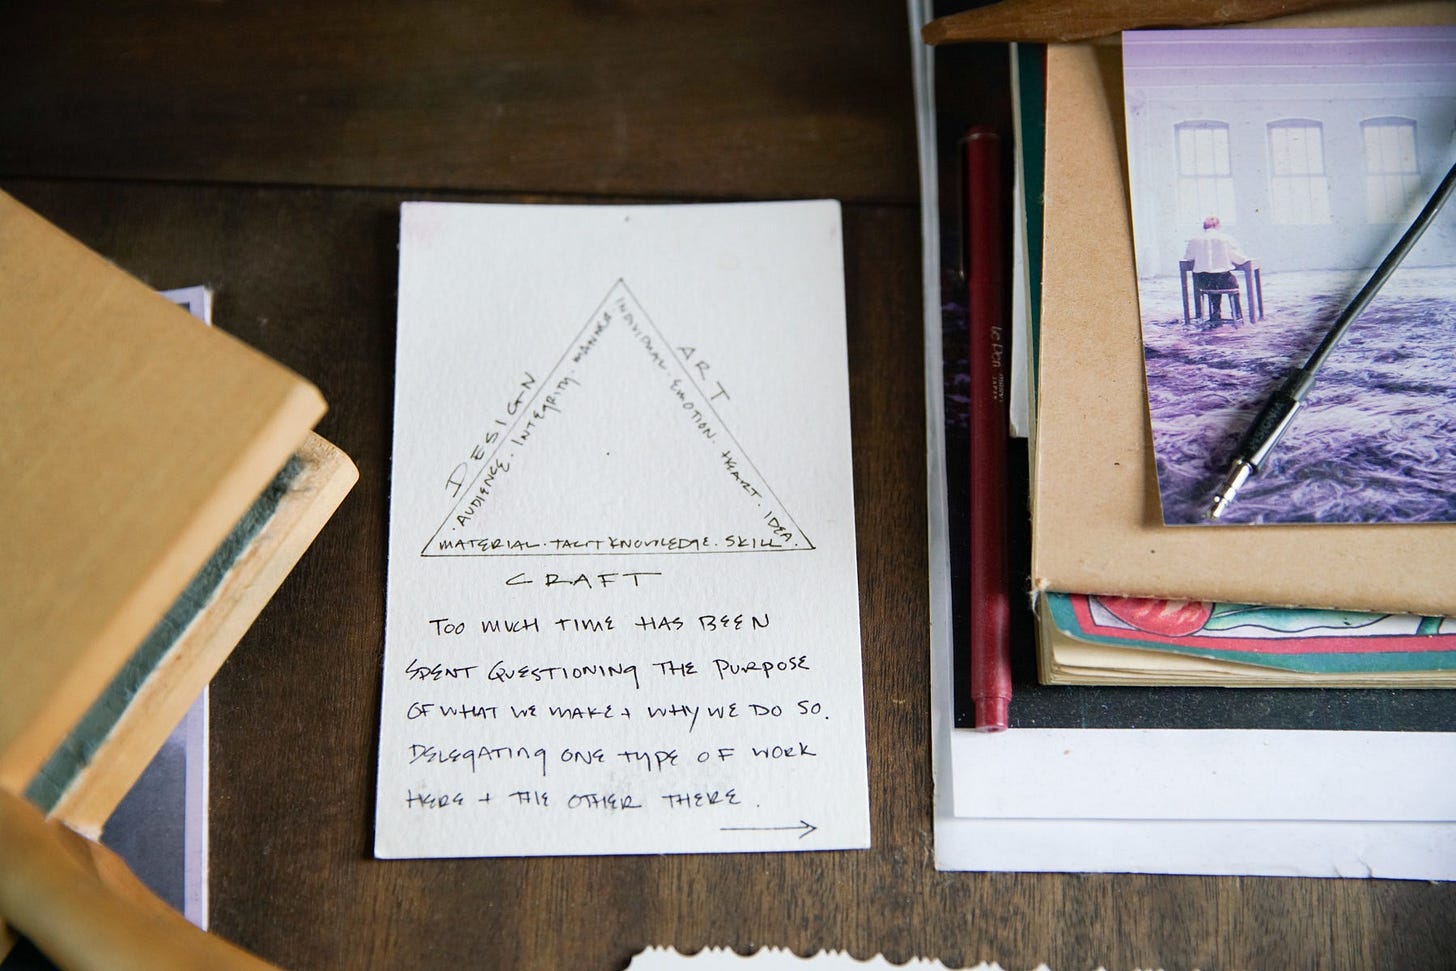 DESIGN
AUDIENCE. INTEGRITY.
ART
INDIVIDUAL. EMOTION. HEART. IDEA.
MATERIAL. TACIT KNOWLEDGE. SKILL.
CRAFT
TOO MUCH TIME HAS BEEN
SPENT QUESTIONING THE PURPOSE
OF WHAT WE MAKE + WHY WE DO SO.
DELEGATING ONE TYPE OF WORK
HERE + THE OTHER THERE.
Le Pen
JAPAN